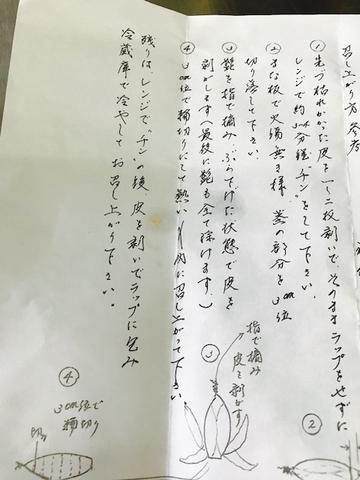 召し上がり方 参考
① 先づ枯れかかった皮を一〜二枚剥いで、そのままラップをせずに
レンジで約3〜4分程“チン”をして下さい。
② まな板で火傷無き様 茎の部分を3㎝位
切り落して下さい。
③ 髭を指で摘み ぶらさげた状態で皮を
剥がします（最後に髭も全て除けます。）
④ 3㎝位で輪切りにして熱い内に召し上がって下さい。
残りは、レンジで“チン”の後 皮を剥いでラップに包み
冷蔵庫で冷やしてお召し上がり下さい。
②
③
指で摘み
皮を剥がす
④
3㎝位で
輪切り
切